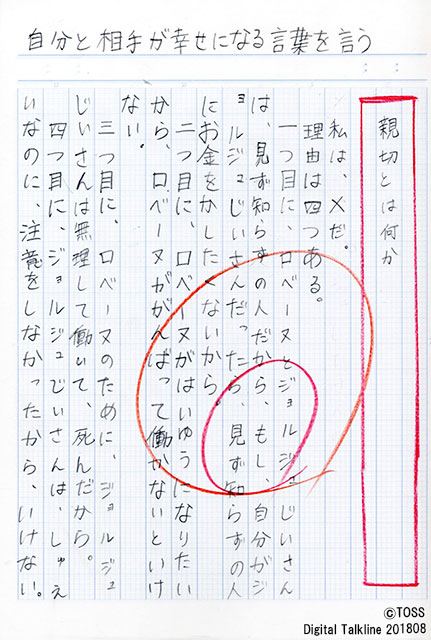 自分と相手が幸せになる言葉を言う
親切とは何か
私は、×だ。
理由は四つある。
一つ目に、ロベーヌとジョルジュじいさん
は、見ず知らずの人だから、もし、自分がジ
ョルジュじいさんだったら、見ず知らずの人
にお金をかしたくないから。
二つ目に、ロベーヌがはいゆうになりたい
から、ロベーヌががんばって働かないといけ
ない。
三つ目に、ロベーヌのために、ジョルジュ
じいさんは無理して働いて、死んだから。
四つ目に、ジョルジュじいさんは、しゅえ
いなのに、注意をしなかったから、いけない。
©TOSS
Digital Talkline 201808